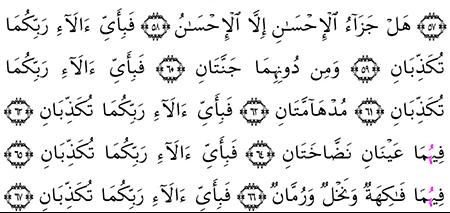 ﴿٥٧﴾ هَلْ جَزَآءُ ٱلْإِحْسَـٰنِ إِلَّا ٱلْإِحْسَـٰنُ ﴿٥٨﴾ فَبِأَىِّ ءَالَآءِ رَبِّكُمَا
تُكَذِّبَانِ ﴿٥٩﴾ وَمِن دُونِهِمَا جَنَّتَانِ ﴿٦٠﴾ فَبِأَىِّ ءَالَآءِ رَبِّكُمَا
تُكَذِّبَانِ ﴿٦١﴾ مُدْهَآمَّتَانِ ﴿٦٢﴾ فَبِأَىِّ ءَالَآءِ رَبِّكُمَا تُكَذِّبَانِ ﴿٦٣﴾
فِيهِمَا عَيْنَانِ نَضَّاخَتَانِ ﴿٦٤﴾ فَبِأَىِّ ءَالَآءِ رَبِّكُمَا تُكَذِّبَانِ ﴿٦٥﴾
فِيهِمَا فَـٰكِهَةٌ وَنَخْلٌ وَرُمَّانٌ ﴿٦٦﴾ فَبِأَىِّ ءَالَآءِ رَبِّكُمَا تُكَذِّبَانِ ﴿٦٧﴾